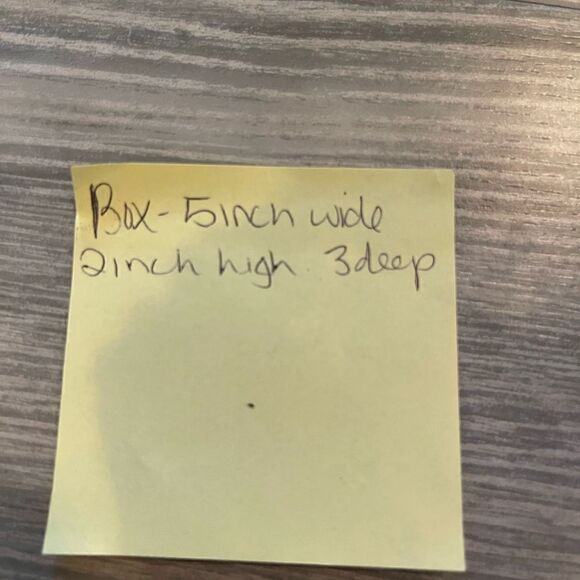 Box- 5inch wide
2inch high. 3deep